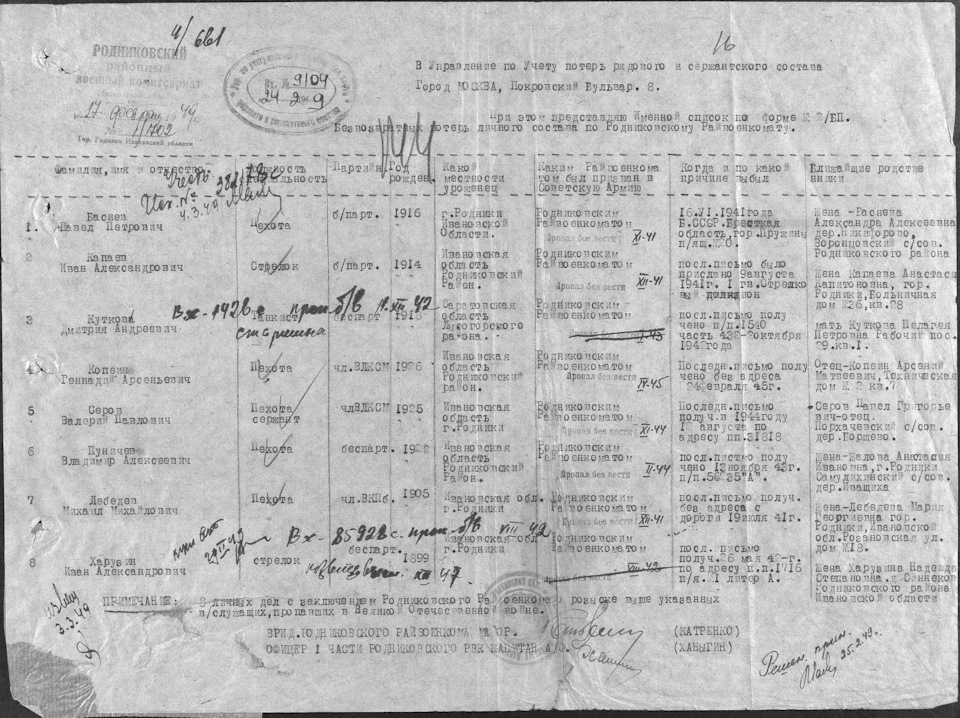 4/661
16
РОДНИКОВСКИЙ
районный
военный комиссариат
17 февраля 1949
№ 1/1702
Гор. Родники Ивановской области
Вх. № 9104
24 2 1949
В Управление по Учету потерь рядового и сержантского состава
Город МОСКВА, Покровский Бульвар. 8.
При этом представляю Именной список по форме № 2/БП.
Безвозвратных потерь личного состава по Родниковскому Райвоенкомату.
Фамилия, имя и отчество
Партийн.
Год рожден.
Какой местности уроженец
Каким Райвоенкоматом был призван в Советскую Армию
Когда и по какой причине выбыл
Ближайшие родственники
4.3.49
1. Баснев
Павел Петрович
Пехота
б/парт.
1916
г.Родники
Ивановской
Области.
Родниковским
Райвоенкоматом
Пропал без вести XI-41
16.VI.1941года
Б.СССР.Брестская
область,гор.Пружины
п/ящ.№.0.
Жена -Баснева
Александра Алексеевна
дер.Никифорово,
Воронцовский с/сов.
Родниковского района
2 Капаев
Иван Александрович
Стрелок
б/парт.
1914
Ивановская
область
Родниковский
Район.
Родниковским
Райвоенкоматом
Пропал без вести XII-41
посл.письмо было
прислано 9августа
1941г. 1 гв.Стрелко
вый дивизион
Жена Капаева Анастасия
Капитоновна, гор.
Родники,Больничная
дом №26,кв.58
3 Куткова
Дмитрия Андреевич
Вх-1428с проп б/в XII 42
старшина
Саратовская
область
Лысогорского
района.
Родниковским
Райвоенкоматом
посл.письмо полу
чено п/п.1540
часть 432-октября
1942года
мать Куткова Пелагея
Петровна Рабочий пос.
29.кв.1.
4 Копеин
Геннадий Арсеньевич
Пехота
чл.ВЛКСМ
1926
Ивановская
область
Родниковский
Район.
Родниковским
Райвоенкоматом
Пропал без вести IV-45
Последн.письмо полу
чено без адреса
24февраля 45г.
Отец-Копеин Арсений
Матвеевич,Техническая
дом № 2 кв.7
5 Серов
Валерий Павлович
Пехота
сержант
члВЛКСМ
1925
Ивановская
область
г.Родники
Родниковским
Райвоенкоматом
Пропал без вести XI-44
Последн.письмо
получ.в 1944году
12 августа по
адресу пп.31818
Серов Павел Григорье
вич-отец.
Порхачевский с/сов.
дер.Горшево.
6 Пуначев
Владимир Алексеевич
Пехота
беспарт.
Ивановская
область
Родниковский
Район.
Родниковским
Райвоенкоматом
Пропал без вести II-44
посл.письмо полу
чено 13ноября 43г.
п/п.56 35"А".
Жена-Жалова Анастасия
Ивановна,г.Родники
Самулихинский с/сов.
дер.Иващиха
7 Лебедев
Михаил Михайлович
Пехота
чл.ВКПб.
1905
Ивановская обл.
г.Родники
Родниковским
Райвоенкоматом
Пропал без вести XII-41
посл.письмо получ.
без адреса с
дороги 19июля 41г.
Жена-Лебедева Мария
Георгиевна гор.
Родники,Ивановской
обл.Розановская ул.
дом №18.
Вх-85928с проп б/в VIII 42
8 Харузин
Иван Александрович
стрелок
беспарт.
1899
Ивановской обл.
г.Родники
Родниковским
Райвоенкоматом
посл. письмо
получ.26 мая 42г.
по адресу п.п.1716
п/я. 11 литер А.
Жена Харузина Надежда
Степановна.д.Синнеков
Родниковского района
Ивановской области
3.3.49
ПРИМЕЧАНИЕ: 8 личных дел с заключением Родниковского Райвоенкома о розыске выше указанных
в/служащих,пропавших в Великой Отечественной войне.
ВРИД.РОДНИКОВСКОГО РАЙВОЕНКОМА МАЙОР. (КАТРЕНКО)
ОФИЦЕР 1 ЧАСТИ РОДНИКОВСКОГО РВК КАПИТАН А/С. (ХАНЫГИН)
Решен. прин.
25.2.49г.